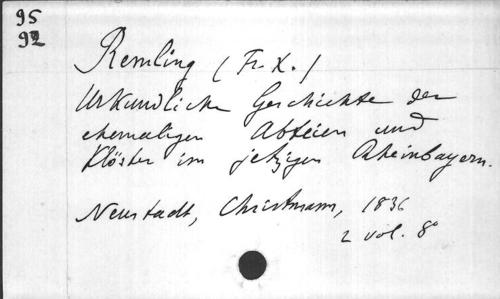 95
92
Remling (Fr. X.)
Urkundliche Geschichte der
ehemaligen Abteien und
Klöster im jetzigen Rheinbayern.
Neustadt, Christmann, 1836
2 vol. 8°